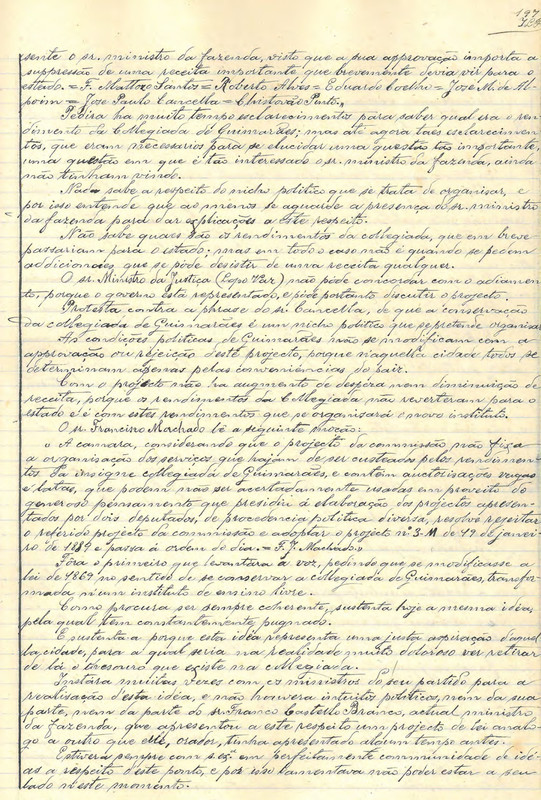 197
sente o sr. ministro da fazenda, visto que a sua approvação importa a
suppressão de uma receita importante que brevemente devia vir para o
estado. = F. Mattozo Santos = Roberto Alves = Eduardo Coelho = José M. de Al-
poim = Jose Paulo Cancella = Christovão Pinto.„
Pedira ha muito tempo esclarecimentos para saber qual era o ren-
dimento da Collegiada de Guimarães; mas até agora taes esclarecimen-
tos, que eram necessarios para se elucidar uma questão tão importante,
uma questão em que é tão interessado o sr. ministro da fazenda, ainda
não tinham vindo.
Nada sabe a respeito do nicho politico que se trata de organisar, e
por isso entende que ao menos se aguarde a presença do sr. ministro
da fazenda para dar explicações a este respeito.
Não sabe quaes são os rendimentos da collegiada, que em breve
passariam para o estado; mas em todo o caso não é quando se pedem
addicionaes que se póde desistir de uma receita qualquer.
O sr. Ministro da Justiça (Lopo Vaz) não póde concordar com o adiamen-
to, porque o governo está representado, e póde portanto discutir o projecto.
Protesta contra a phrase do sr. Cancella, de que a conservação
da collegiada de Guimarães é um nicho politico que se pretende organisar.
As condições politicas de Guimarães não se modificam com a
approvação ou rejeição d'este projecto, porque n'aquella cidade todos se
determinam apenas pelas conveniencias do paiz.
Com o projecto não ha augmento de despeza nem diminuição de
receita, porque os rendimentos da Collegiada não reverteram para o
estado e é com estes rendimentos que se organisará o novo instituto.
O sr. Francisco Machado lê a seguinte moção:
« A camara, considerando que o projecto da commissão não fixa
a organisação dos serviços que hajam de ser custeados pelos rendimen-
tos da insigne collegiada de Guimarães, e contém auctorisações vagas
e latas, que podem não ser acertadamente usadas em proveito do
generoso pensamento que presidiu á elaboração dos projectos apresen-
tados por dois deputados, de procedencia politica diversa, resolve rejeitar
o referido projecto da commissão e adoptar o projecto n.º 3-M de 19 de janei-
ro de 1889 e passa á ordem do dia. = F. J. Machado.»
Fôra o primeiro que levantára a voz, pedindo que se modificasse a
lei de 1869 no sentido de se conservar a collegiada de Guimarães, transfor-
mada n'um instituto de ensino livre.
Como procura ser sempre coherente, sustenta hoje a mesma idéa,
pela qual tem constantemente pugnado.
E sustenta-a porque esta idéa representa uma justa aspiração d'aquel-
la cidade, para a qual seria na realidade muito doloroso ver retirar
de lá o thesouro que existe na collegiada.
Instára muitas vezes com os ministros do seu partido para a
realisação d'esta idéa, e não houvera intuitos politicos, nem da sua
parte, nem da parte do sr. Franco Castello Branco, actual ministro
da fazenda, que apresentou a este respeito um projecto de lei analo-
go a outro que elle, orador, tinha apresentado algum tempo antes.
Estivera sempre com s. ex.ª em perfeita communidade de idé-
as a respeito d'este ponto, e por isso lamentava não poder estar a seu
lado n'este momento.